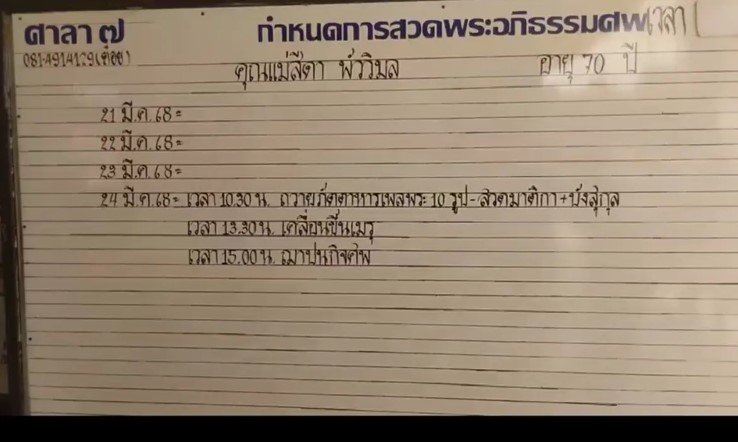 ศาลา ๗ กำหนดการสวดพระอภิธรรมศพ เวลา
คุณแม่สีดา พัววิมล อายุ 70 ปี
21 มี.ค. 68 =
22 มี.ค. 68 =
23 มี.ค. 68 =
24 มี.ค. 68 = เวลา 10.30 น. ถวายภัตตาหารเพลพระ 10 รูป - สวดมาติกา + บังสุกุล
เวลา 13.30 น. เคลื่อนขึ้นเมรุ
เวลา 15.00 น. ฌาปนกิจศพ